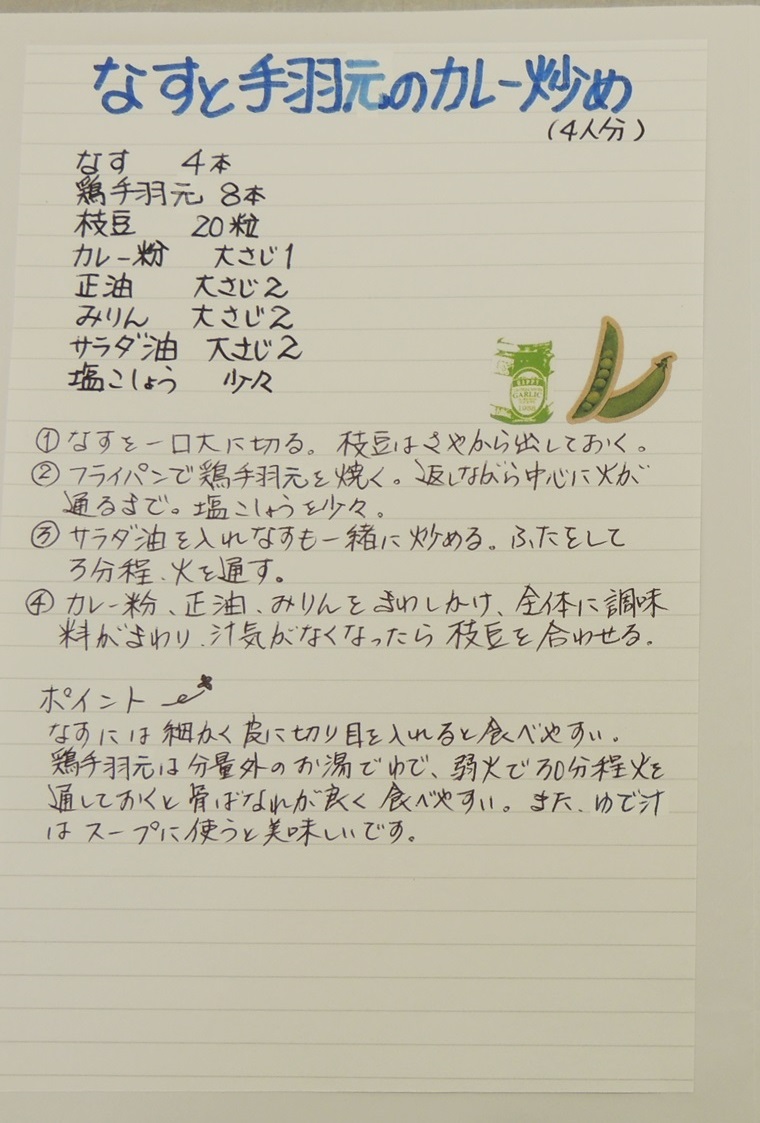 なすと手羽元のカレー炒め
(4人分)
なす 4本
鶏手羽元 8本
枝豆 20粒
カレー粉 大さじ1
正油 大さじ2
みりん 大さじ2
サラダ油 大さじ2
塩こしょう 少々
GARLIC
①なすを一口大に切る。枝豆はさやから出しておく。
②フライパンで鶏手羽元を焼く。返しながら中心に火が
通るまで。塩こしょうを少々。
③サラダ油を入れなすも一緒に炒める。ふたをして
3分程、火を通す。
④カレー粉、正油、みりんをまわしかけ、全体に調味
料がまわり、汁気がなくなったら枝豆を合わせる。
ポイント
なすには細かく皮に切り目を入れると食べやすい。
鶏手羽元は分量外のお湯でゆで、弱火で30分程火を
通しておくと骨ばなれが良く食べやすい。また、ゆで汁
はスープに使うと美味しいです。